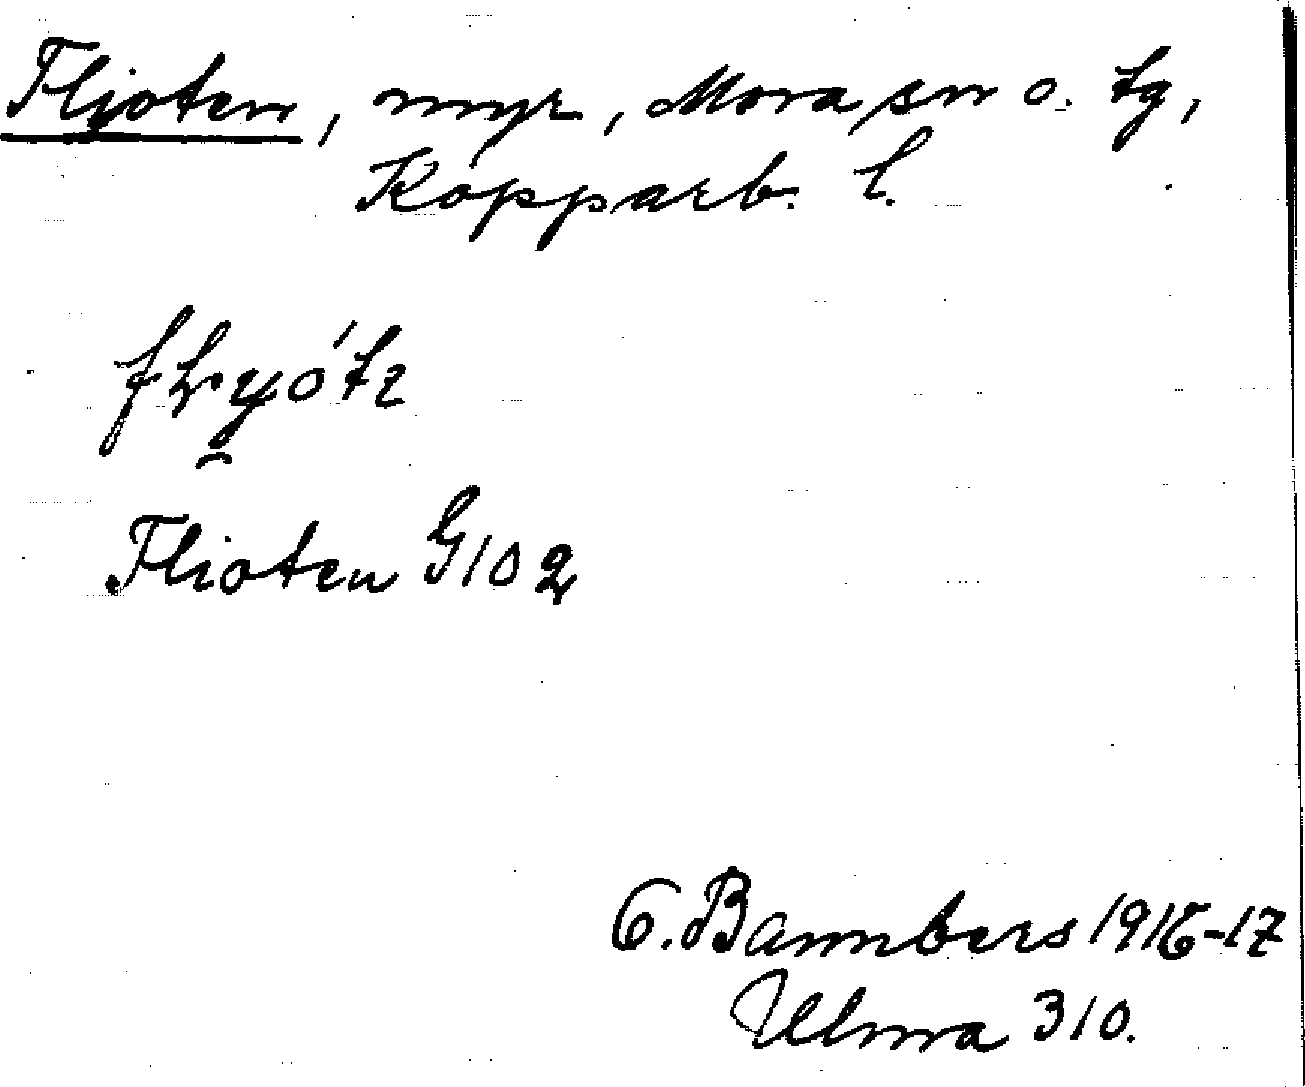 Fljoten, myr, Mora sn o. tg,
Kopparb. l.
Flioten G102
O. Bannbers 1916-17
Ulma 310.